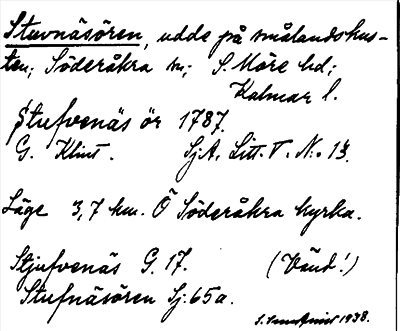 Stuvnäsören, udde på smålandskus-
ten; Söderåkra sn; S. Möre hd;
Kalmar l.
Stufvenäs ör 1787.
G. Klint. Sj.A. Litt. T. N:o 13.
Läge 3,7 km. Ö Söderåkra kyrka.
Stjufvenäs G. 17. (Vänd!)
Stufnäsören Sj. 65a.
1938.